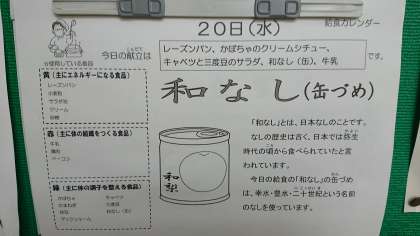 給食カレンダー
20日(水)
こんだて
今日の献立は
レーズンパン、かぼちゃのクリームシチュー、
キャベツと三度豆のサラダ、和なし(缶)、牛乳
です。
☆使用している食品
黄(主にエネルギーになる食品)
レーズンパン
小麦粉
サラダ油
クリーム
砂糖
赤(主に体の組織をつくる食品)
牛乳
鶏肉
ベーコン
緑(主に体の調子を整える食品)
かぼちゃ キャベツ
たまねぎ 三度豆
和なし(缶)
マッシュルーム
和なし(缶づめ)
和梨
「和なし」とは、日本なしのことです。
なしの歴史は古く、日本では弥生
時代の頃から食べられていたと言
われています。
今日の給食の「和なし」の缶づめ
は、幸水・豊水・二十世紀という名前
のなしを使っています。